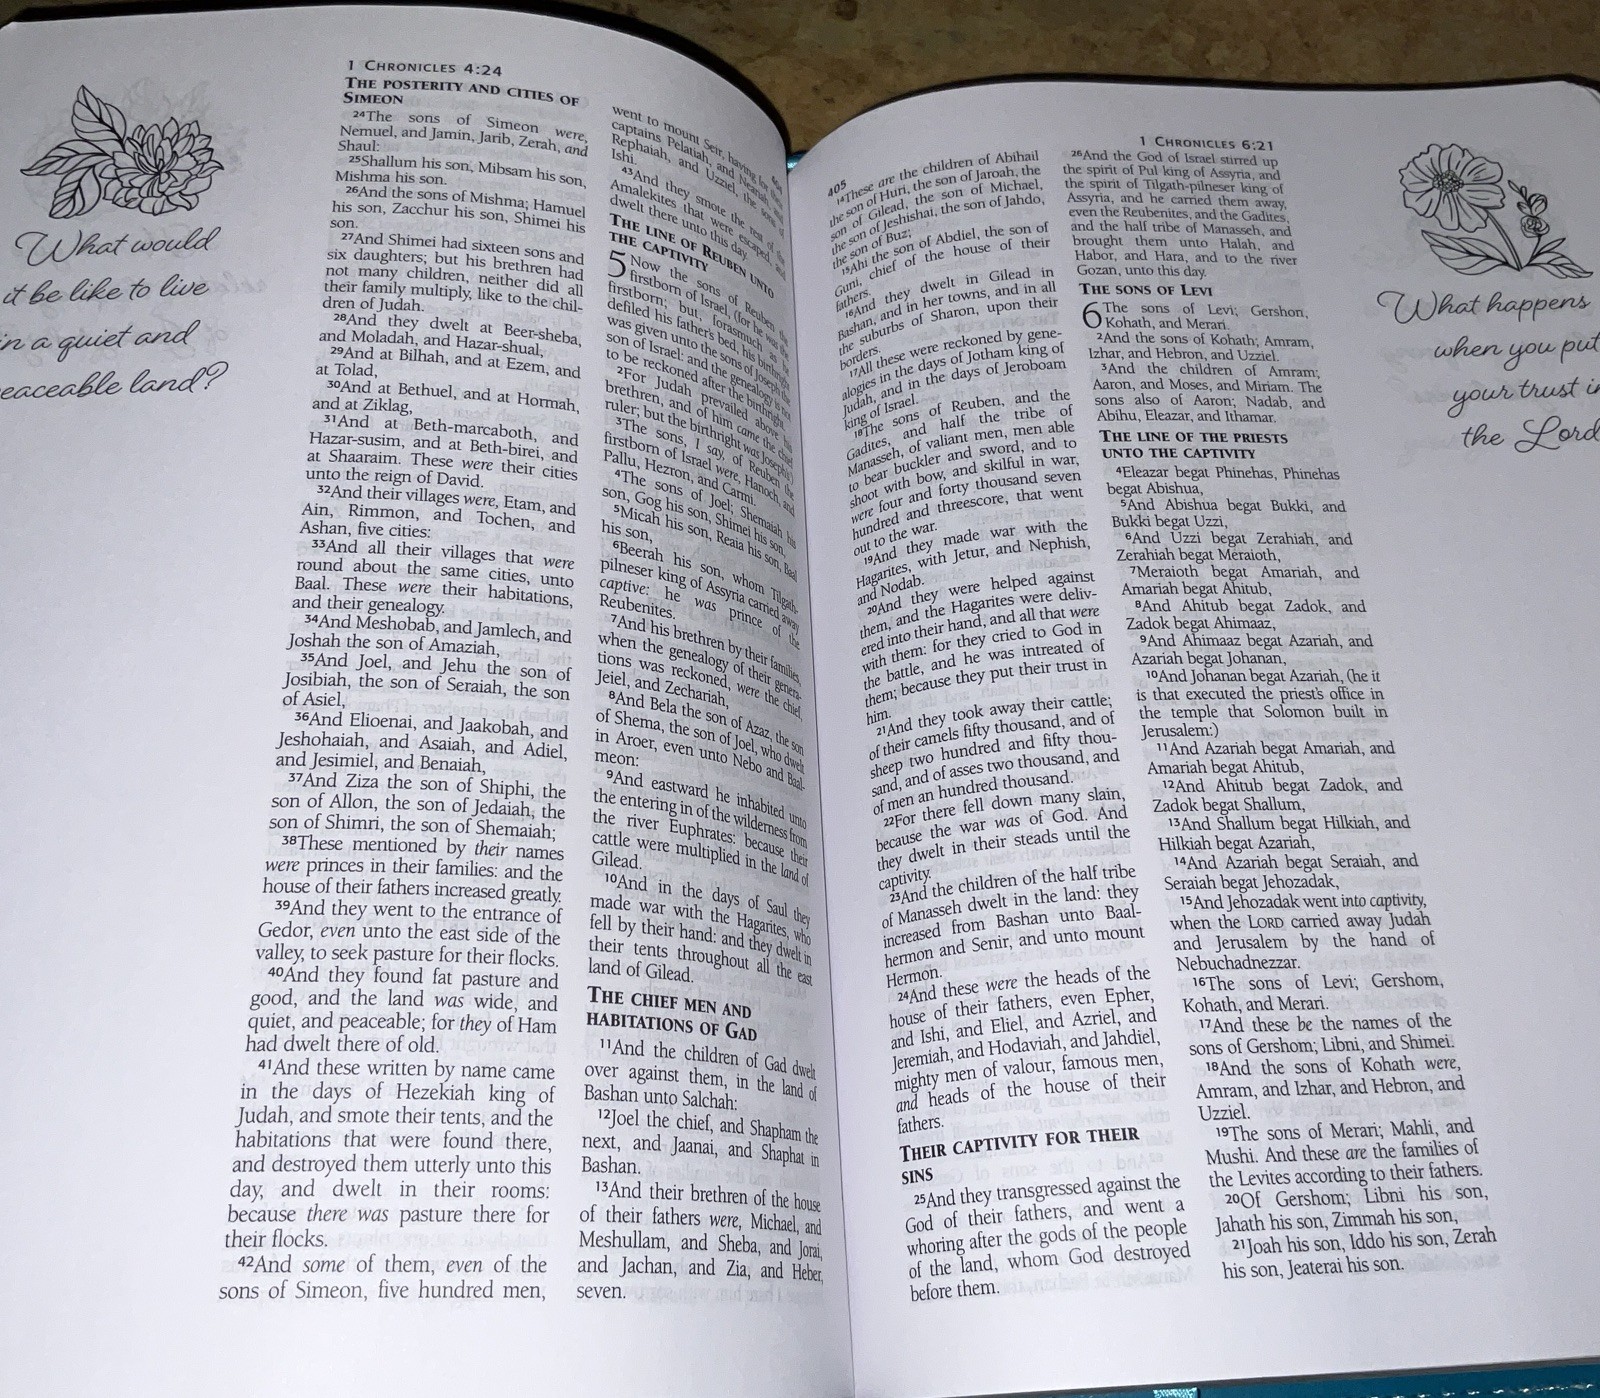 What would
it be like to live
in a quiet and
peaceable land?
1 CHRONICLES 4:24
THE POSTERITY AND CITIES OF
SIMEON
24The sons of Simeon were,
Nemuel, and Jamin, Jarib, Zerah, and
Shaul:
25Shallum his son, Mibsam his son,
Mishma his son.
26And the sons of Mishma; Hamuel
his son, Zacchur his son, Shimei his
son.
27And Shimei had sixteen sons and
six daughters; but his brethren had
not many children, neither did all
their family multiply, like to the chil-
dren of Judah.
28And they dwelt at Beer-sheba,
and Moladah, and Hazar-shual,
29And at Bilhah, and at Ezem, and
at Tolad,
30And at Bethuel, and at Hormah,
and at Ziklag,
31And at Beth-marcaboth, and
Hazar-susim, and at Beth-birei, and
at Shaaraim. These were their cities
unto the reign of David.
32And their villages were, Etam, and
Ain, Rimmon, and Tochen, and
Ashan, five cities:
33And all their villages that were
round about the same cities, unto
Baal. These were their habitations,
and their genealogy.
34And Meshobab, and Jamlech, and
Joshah the son of Amaziah,
35And Joel, and Jehu the son of
Josibiah, the son of Seraiah, the son
of Asiel,
36And Elioenai, and Jaakobah, and
Jeshohaiah, and Asaiah, and Adiel,
and Jesimiel, and Benaiah,
37And Ziza the son of Shiphi, the
son of Allon, the son of Jedaiah, the
son of Shimri, the son of Shemaiah;
38These mentioned by their names
were princes in their families: and the
house of their fathers increased greatly.
39And they went to the entrance of
Gedor, even unto the east side of the
valley, to seek pasture for their flocks.
40And they found fat pasture and
good, and the land was wide, and
quiet, and peaceable; for they of Ham
had dwelt there of old.
41And these written by name came
in the days of Hezekiah king of
Judah, and smote their tents, and the
habitations that were found there,
and destroyed them utterly unto this
day, and dwelt in their rooms:
because there was pasture there for
their flocks.
42And some of them, even of the
sons of Simeon, five hundred men,
404
went to mount Seir, having for their
captains Pelatiah, and Neariah, and
Rephaiah, and Uzziel, the sons of
Ishi.
43And they smote the rest of the
Amalekites that were escaped, and
dwelt there unto this day.
THE LINE OF REUBEN UNTO
THE CAPTIVITY
5 Now the sons of Reuben the
firstborn of Israel, (for he was the
firstborn; but, forasmuch as he
defiled his father's bed, his birthright
was given unto the sons of Joseph the
son of Israel: and the genealogy is not
to be reckoned after the birthright.
2For Judah prevailed above his
brethren, and of him came the chief
ruler; but the birthright was Joseph's:)
3The sons, I say, of Reuben the
firstborn of Israel were, Hanoch, and
Pallu, Hezron, and Carmi.
4The sons of Joel; Shemaiah his
son, Gog his son, Shimei his son,
5Micah his son, Reaia his son, Baal
his son,
6Beerah his son, whom Tilgath-
pilneser king of Assyria carried away
captive: he was prince of the
Reubenites.
7And his brethren by their families,
when the genealogy of their genera-
tions was reckoned, were the chief,
Jeiel, and Zechariah,
8And Bela the son of Azaz, the son
of Shema, the son of Joel, who dwelt
in Aroer, even unto Nebo and Baal-
meon:
9And eastward he inhabited unto
the entering in of the wilderness from
the river Euphrates: because their
cattle were multiplied in the land of
Gilead.
10And in the days of Saul they
made war with the Hagarites, who
fell by their hand: and they dwelt in
their tents throughout all the east
land of Gilead.
THE CHIEF MEN AND
HABITATIONS OF GAD
11And the children of Gad dwelt
over against them, in the land of
Bashan unto Salchah:
12Joel the chief, and Shapham the
next, and Jaanai, and Shaphat in
Bashan.
13And their brethren of the house
of their fathers were, Michael, and
Meshullam, and Sheba, and Jorai,
and Jachan, and Zia, and Heber,
seven.
405
14These are the children of Abihail
the son of Huri, the son of Jaroah, the
son of Gilead, the son of Michael,
the son of Jeshishai, the son of Jahdo,
the son of Buz;
15Ahi the son of Abdiel, the son of
Guni, chief of the house of their
fathers.
16And they dwelt in Gilead in
Bashan, and in her towns, and in all
the suburbs of Sharon, upon their
borders.
17All these were reckoned by gene-
alogies in the days of Jotham king of
Judah, and in the days of Jeroboam
king of Israel.
18The sons of Reuben, and the
Gadites, and half the tribe of
Manasseh, of valiant men, men able
to bear buckler and sword, and to
shoot with bow, and skilful in war,
were four and forty thousand seven
hundred and threescore, that went
out to the war.
19And they made war with the
Hagarites, with Jetur, and Nephish,
and Nodab.
20And they were helped against
them, and the Hagarites were deliv-
ered into their hand, and all that were
with them: for they cried to God in
the battle, and he was intreated of
them; because they put their trust in
him.
21And they took away their cattle;
of their camels fifty thousand, and of
sheep two hundred and fifty thou-
sand, and of asses two thousand, and
of men an hundred thousand.
22For there fell down many slain,
because the war was of God. And
they dwelt in their steads until the
captivity.
23And the children of the half tribe
of Manasseh dwelt in the land: they
increased from Bashan unto Baal-
hermon and Senir, and unto mount
Hermon.
24And these were the heads of the
house of their fathers, even Epher,
and Ishi, and Eliel, and Azriel, and
Jeremiah, and Hodaviah, and Jahdiel,
mighty men of valour, famous men,
and heads of the house of their
fathers.
THEIR CAPTIVITY FOR THEIR
SINS
25And they transgressed against the
God of their fathers, and went a
whoring after the gods of the people
of the land, whom God destroyed
before them.
1 CHRONICLES 6:21
26And the God of Israel stirred up
the spirit of Pul king of Assyria, and
the spirit of Tilgath-pilneser king of
Assyria, and he carried them away,
even the Reubenites, and the Gadites,
and the half tribe of Manasseh, and
brought them unto Halah, and
Habor, and Hara, and to the river
Gozan, unto this day.
THE SONS OF LEVI
6 The sons of Levi; Gershon,
Kohath, and Merari.
2And the sons of Kohath; Amram,
Izhar, and Hebron, and Uzziel.
3And the children of Amram;
Aaron, and Moses, and Miriam. The
sons also of Aaron; Nadab, and
Abihu, Eleazar, and Ithamar.
THE LINE OF THE PRIESTS
UNTO THE CAPTIVITY
4Eleazar begat Phinehas, Phinehas
begat Abishua,
5And Abishua begat Bukki, and
Bukki begat Uzzi,
6And Uzzi begat Zerahiah, and
Zerahiah begat Meraioth,
7Meraioth begat Amariah, and
Amariah begat Ahitub,
8And Ahitub begat Zadok, and
Zadok begat Ahimaaz,
9And Ahimaaz begat Azariah, and
Azariah begat Johanan,
10And Johanan begat Azariah, (he it
is that executed the priest's office in
the temple that Solomon built in
Jerusalem:)
11And Azariah begat Amariah, and
Amariah begat Ahitub,
12And Ahitub begat Zadok, and
Zadok begat Shallum,
13And Shallum begat Hilkiah, and
Hilkiah begat Azariah,
14And Azariah begat Seraiah, and
Seraiah begat Jehozadak,
15And Jehozadak went into captivity,
when the LORD carried away Judah
and Jerusalem by the hand of
Nebuchadnezzar.
16The sons of Levi; Gershom,
Kohath, and Merari.
17And these be the names of the
sons of Gershom; Libni, and Shimei.
18And the sons of Kohath were,
Amram, and Izhar, and Hebron, and
Uzziel.
19The sons of Merari; Mahli, and
Mushi. And these are the families of
the Levites according to their fathers.
20Of Gershom; Libni his son,
Jahath his son, Zimmah his son,
21Joah his son, Iddo his son, Zerah
his son, Jeaterai his son.
What happens
when you put
your trust in
the Lord